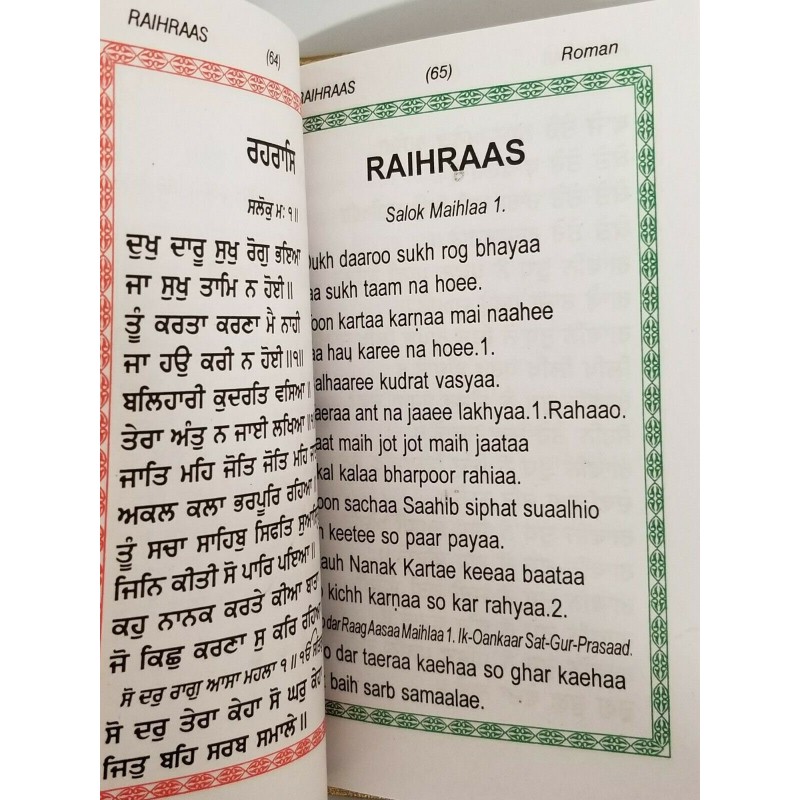 RAIHRAAS
(64)
ਰਹਰਾਸਿ
ਸਲੋਕੁ ਮਃ ੧॥
ਦੁਖੁ ਦਾਰੂ ਸੁਖੁ ਰੋਗੁ ਭਇਆ
ਜਾ ਸੁਖੁ ਤਾਮਿ ਨ ਹੋਈ॥
ਤੂੰ ਕਰਤਾ ਕਰਣਾ ਮੈ ਨਾਹੀ
ਜਾ ਹਉ ਕਰੀ ਨ ਹੋਈ॥੧॥
ਬਲਿਹਾਰੀ ਕੁਦਰਤਿ ਵਸਿਆ॥
ਤੇਰਾ ਅੰਤੁ ਨ ਜਾਈ ਲਖਿਆ॥
ਜਾਤਿ ਮਹਿ ਜੋਤਿ ਜੋਤਿ ਮਹਿ
ਅਕਲ ਕਲਾ ਭਰਪੂਰਿ ਰਹਿਆ
ਤੂੰ ਸਚਾ ਸਾਹਿਬੁ ਸਿਫਤਿ
ਜਿਨਿ ਕੀਤੀ ਸੋ ਪਾਰਿ ਪਇਆ॥
ਕਹੁ ਨਾਨਕ ਕਰਤੇ ਕੀਆ ਬਾਤਾ
ਜੋ ਕਿਛੁ ਕਰਣਾ ਸੁ ਕਰਿ ਰਹਿਆ
ਸੋ ਦਰੁ ਰਾਗੁ ਆਸਾ ਮਹਲਾ ੧॥
ਸੋ ਦਰੁ ਤੇਰਾ ਕੇਹਾ ਸੋ ਘਰੁ ਕੇਹਾ
ਜਿਤੁ ਬਹਿ ਸਰਬ ਸਮਾਲੇ॥
RAIHRAAS
(65)
Roman
RAIHRAAS
Salok Maihlaa 1.
Dukh daaroo sukh rog bhayaa
sukh taam na hoee.
kartaa karṇaa mai naahee
hau karee na hoee.1.
kudrat vasyaa.
ant na jaaee lakhyaa.1.Rahaao.
maih jot jot maih jaataa
kalaa bharpoor rahiaa.
sachaa Saahib siphat suaalhio
keetee so paar payaa.
Nanak Kartae keeaa baataa
kichh karṇaa so kar rahyaa.2.
dar Raag Aasaa Maihlaa 1. Ik-Oankaar Sat-Gur-Prasaad.
dar taeraa kaehaa so ghar kaehaa
baih sarb samaalae.